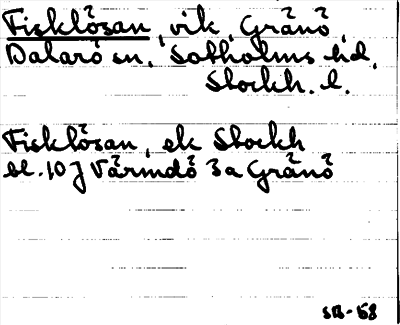 Fisklösan, vik, Gränö,
Dalarö sn, Sotholms hd,
Stockh. l.
Fisklösan, ek Stockh
bl. 10 J Värmdö 3a Gränö
SB-58